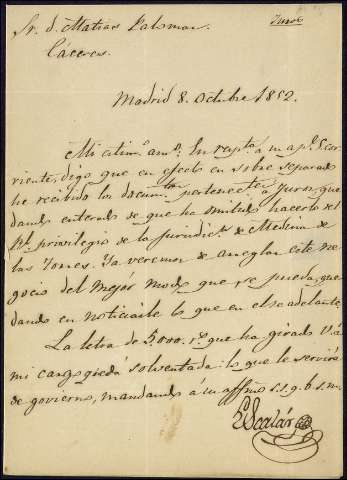 Sr. D. Matias Palomar
Juros
Cáceres.
Madrid 8. Octubre 1852.
Mi estimº. amº: En respta. á su apª. 5 cor-
riente, digo que en efecto en sobre separado
he recibido los documtos. pertenectes. á Juros, que
dando enterado de que ha omitido hacerlo del
Rl. privilegio de la jurisdicn. de Medina de
las Torres. Ya veremos de arreglar este ne
gocio del mejor modo que se pueda, que
dando en noticiarle lo que en él se adelante.
La letra de 5,000 rs. que ha girado V. á
mi cargo quedó solventada: lo que le servirá
de govierno, mandando á su affmo. s.s.q.b.s.m.
Escalár